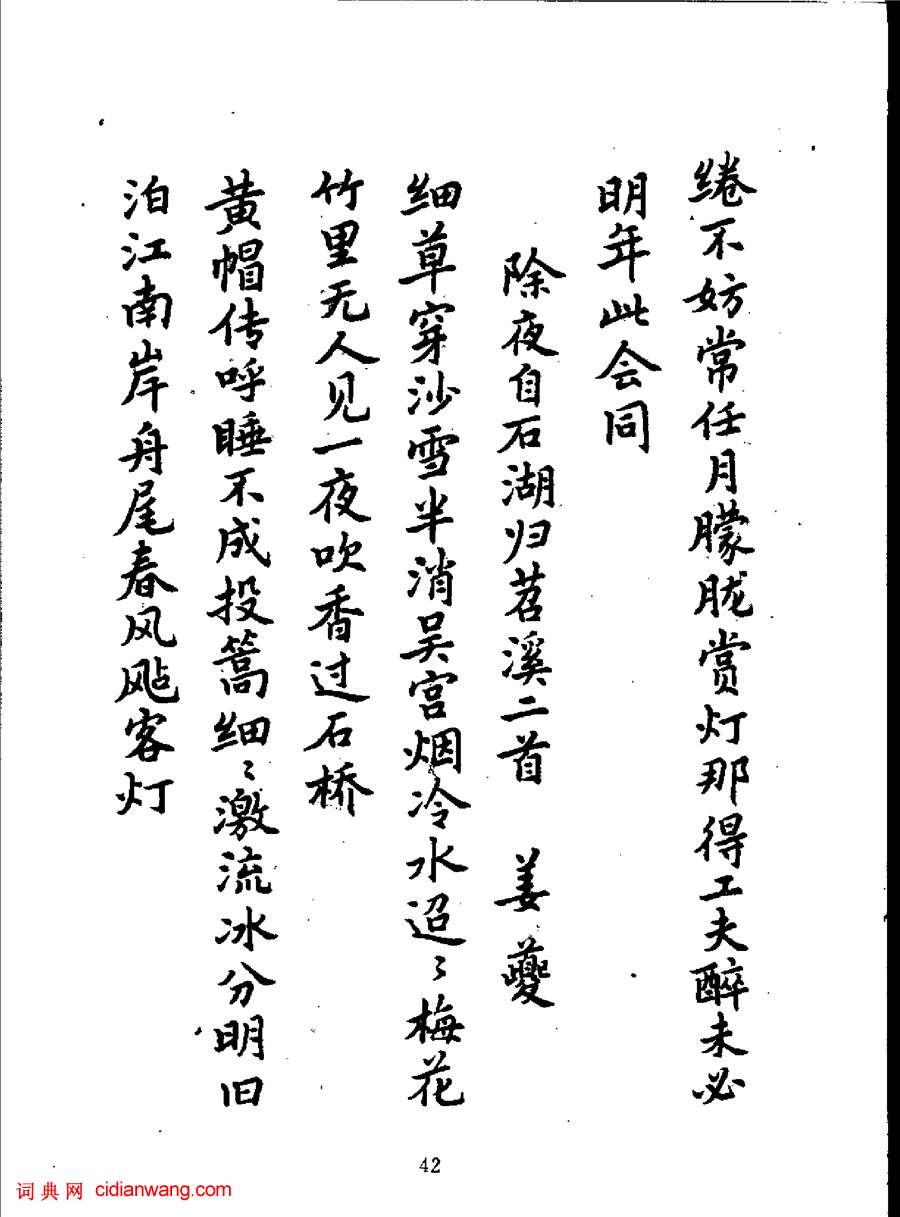 绻不妨常任月朦胧赏灯那得工夫醉未必
明年此会同
除夜自石湖归苕溪二首 姜夔
细草穿沙雪半消吴宫烟冷水迢〻梅花
竹里无人见一夜吹香过石桥
黄帽传呼睡不成投篙细〻激流冰分明旧
泊江南岸舟尾春风飐客灯
42
词典网 cidianwang.com